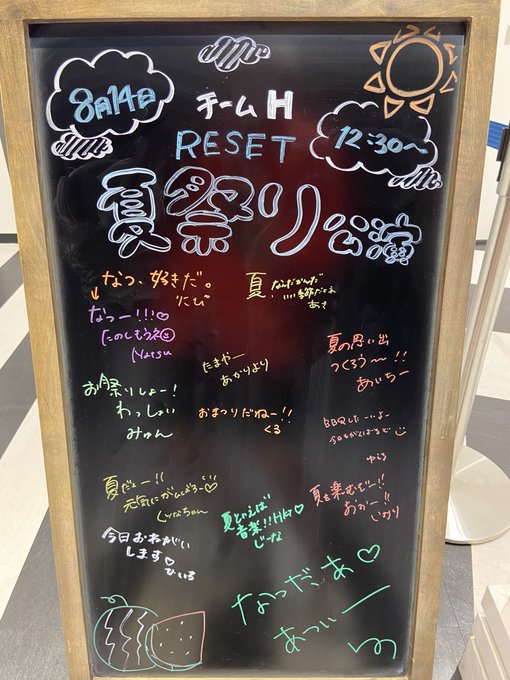 8月14日
チームH
RESET
12:30〜
夏祭り公演
なつ、好きだ。
にび
夏、なんだかんだ
いい季節だよね
あさ
↓
なつー!!!♡
たのしもうね
Natsu
たまやー
あかりより
夏の思い出
つくろう〜!!
あいちー
お祭りしょー!
わっしょい
みゅん
おまつりだねー!!
くる
BBQしたーいよー
今日もがんばるぞ
ゆうる
夏だよー!!
元気にがんばろー♡
ちゃん
夏といえば
音楽!!HKT♡
じーな
夏を楽むぞー!!
おかー!!
しおり
今日おねがい
します♡
ひいろ
なつだ、あ♡
あつぃー